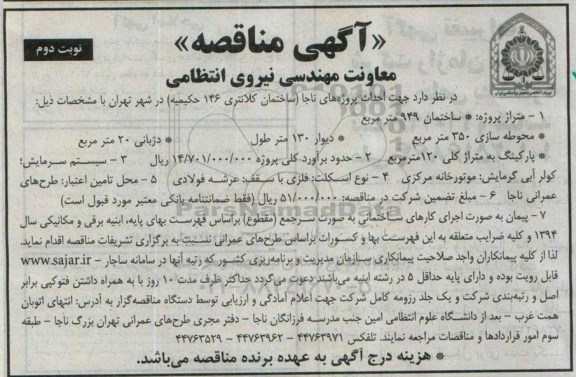 «آگهی مناقصه»
نوبت دوم
معاونت مهندسی نیروی انتظامی
در نظر دارد جهت احداث پروژه‌های ناجا (ساختمان کلانتری ۱۴۶ حکیمیه) در شهر تهران با مشخصات ذیل:
۱ – متراژ پروژه: * ساختمان ۹۴۹ متر مربع
* محوطه سازی ۳۵۰ متر مربع * دیوار ۱۳۰ متر طول * دژبانی ۲۰ متر مربع
* پارکینگ به متراژ کلی ۱۲۰مترمربع ۲ – حدود برآورد کلی پروژه ۱۴/۷۰۱/۰۰۰/۰۰۰ ریال ۳ – سیستم سرمایش:
کولر آبی گرمایش: موتورخانه مرکزی ۴ – نوع اسکلت: فلزی با سقف: عرشه فولادی ۵ – محل تامین اعتبار: طرح‌های
عمرانی ناجا ۶ – مبلغ تضمین شرکت در مناقصه: ۵۱/۰۰۰/۰۰۰ ریال (فقط ضمانتنامه بانکی معتبر مورد قبول است)
۷ – پیمان به صورت اجرای کارهای ساختمانی به صورت سرجمع (مقطوع) براساس فهرست بهای پایه، ابنیه برقی و مکانیکی سال
۱۳۹۴ و کلیه ضرایب متعلقه به این فهرست بها و کسورات براساس طرح‌های عمرانی نسبت به برگزاری تشریفات مناقصه اقدام نماید.
لذا از کلیه پیمانکاران واجد صلاحیت پیمانکاری سازمان مدیریت و برنامه‌ریزی کشور که رتبه آنها در سامانه ساجار – www.sajar.ir
قابل رویت بوده و دارای پایه حداقل ۵ در رشته ابنیه می‌باشند دعوت می‌گردد حداکثر ظرف مدت ۱۰ روز با به همراه داشتن فتوکپی برابر
اصل و رتبه‌بندی شرکت و یک جلد رزومه کامل شرکت جهت اعلام آمادگی و ارزیابی توسط دستگاه مناقصه‌گزار به آدرس: انتهای اتوبان
همت غرب – بعد از دانشگاه علوم انتظامی امین جنب مدرسه فرزانگان ناجا – دفتر مجری طرح‌های عمرانی تهران بزرگ ناجا – طبقه
سوم امور قراردادها و مناقصات مراجعه نمایند. تلفکس ۴۴۷۶۳۹۷۱ – ۴۴۷۶۳۹۶۲ – ۴۴۷۶۳۵۲۹
* هزینه درج آگهی به عهده برنده مناقصه می‌باشد.